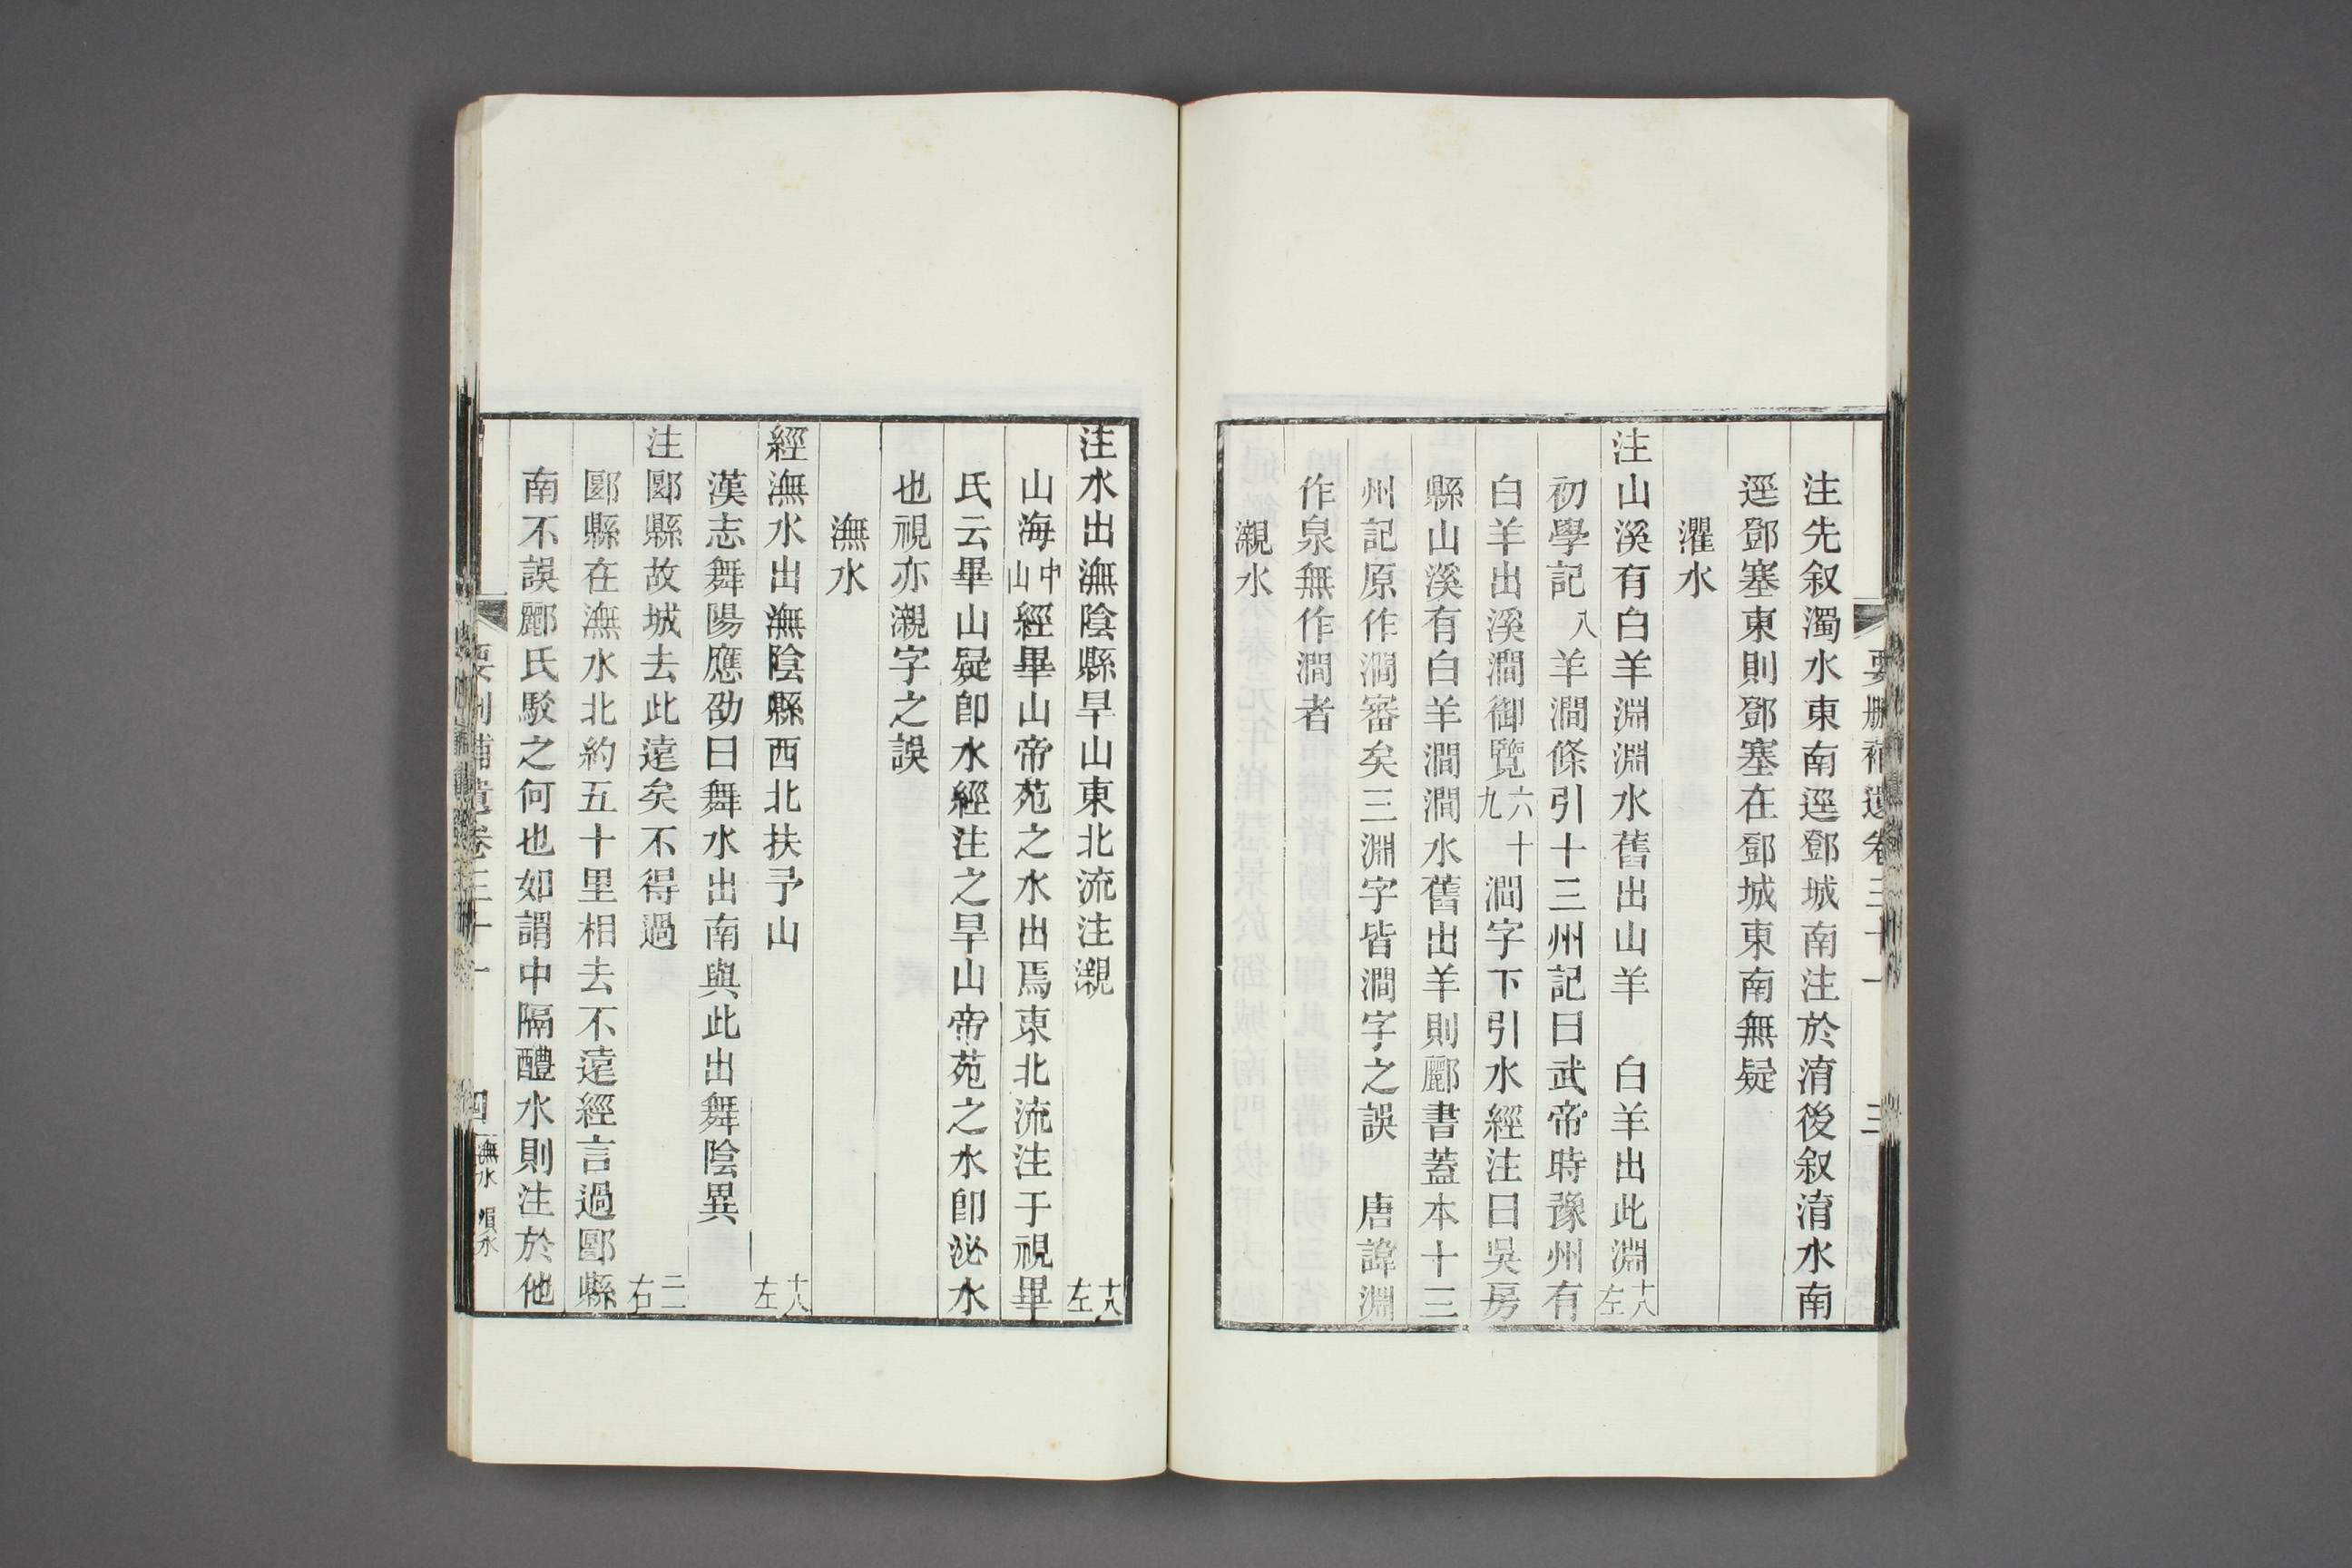 要刪補遺卷三十一 三
注先叙濁水東南逕鄧城南注於淯後叙淯水南
逕鄧塞東則鄧塞在鄧城東南無疑
灈水
注山溪有白羊淵淵水舊出山羊 白羊出此淵十八左
初學記八羊澗條引十三州記曰武帝時豫州有
白羊出溪澗御覽六十九澗字下引水經注曰吳房
縣山溪有白羊澗澗水舊出羊則酈書蓋本十三
州記原作澗審矣三淵字皆澗字之誤 唐諱淵
作泉無作澗者
瀙水
注水出潕陰縣旱山東北流注瀙十八左
山海中山經畢山帝苑之水出焉東北流注于視畢
氏云畢山疑卽水經注之旱山帝苑之水卽泌水
也視亦瀙字之誤
潕水
經潕水出潕陰縣西北扶予山十八左
漢志舞陽應劭曰舞水出南與此出舞陰異
注郾縣故城去此遠矣不得過二二右
郾縣在潕水北約五十里相去不遠經言過郾縣
南不誤酈氏駁之何也如謂中隔醴水則注於他
要刪補遺卷三十一 四 潕水 溳水